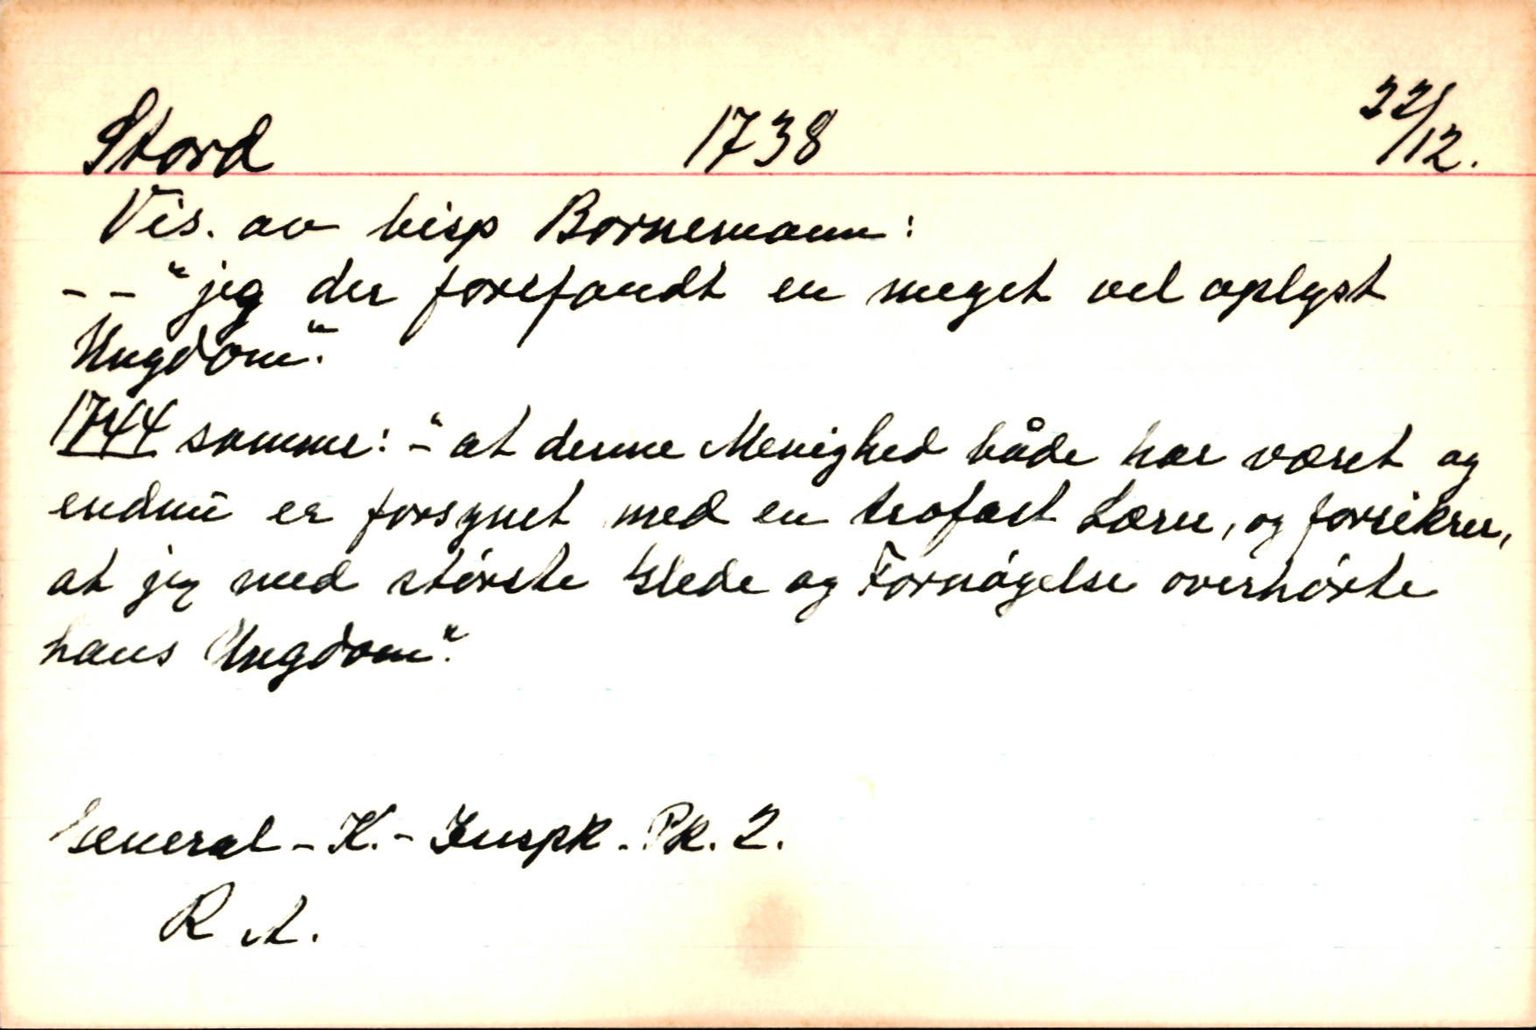 Stord 1738 22/12.
Vis. av bisp Bornemann:
- - "jeg der forefandt en meget vel oplyst
Ungdom".
1744 samme: - "at denne Menighed både har været og
endnu er forsynet med en trofast Lærer, og forsikrer,
at jeg med störste Glede og Fornögelse overhörte
hans Ungdom".
General - K. - Inspk. Pk. 2.
R. A.